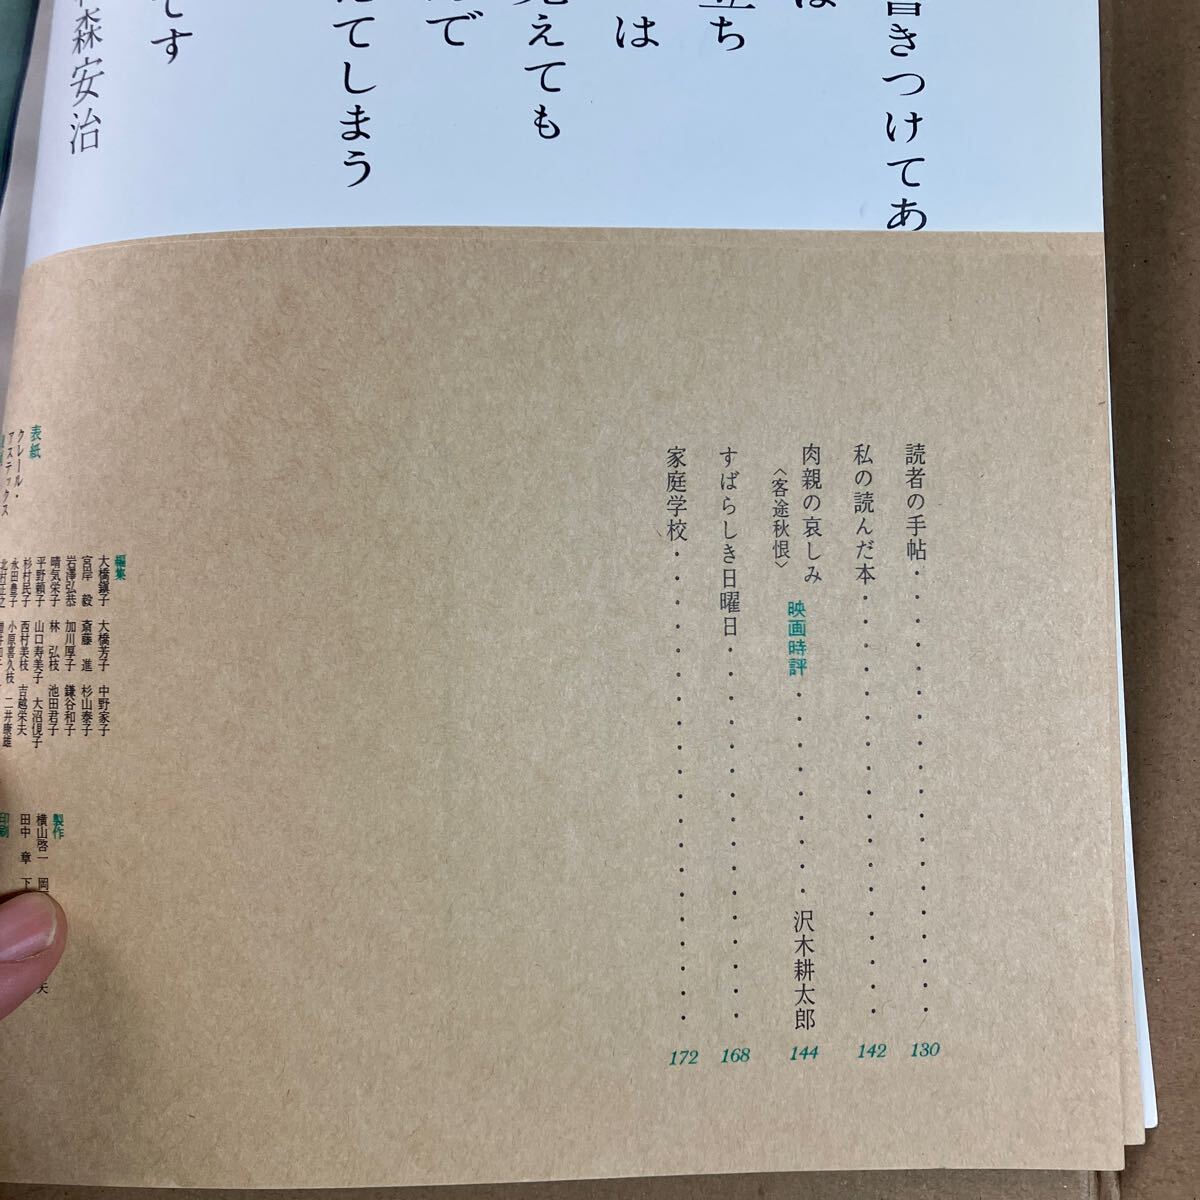 書きつけてあ
は
立ち
は
見えても
で
てしまう
です
森安治
読者の手帖・・・・・・・・・・・・・・・・・・・130
私の読んだ本・・・・・・・・・・・・・・・・・・142
肉親の哀しみ 映画時評・・・・・・・・・沢木耕太郎 144
〈客途秋恨〉
すばらしき日曜日・・・・・・・・・・・・・・・・168
家庭学校・・・・・・・・・・・・・・・・・・・172
編集
大橋鎭子 大橋芳子 中野家子
宮岸 毅 斎藤 進 杉山泰子
岩澤弘恭 加川厚子 鎌谷和子
晴気栄子 林 弘枝 池田君子
平野頼子 山口寿美子 大沼俔子
杉村民子 西村美枝 吉越栄夫
永田豊子 小原喜久枝 二井康雄
表紙
クレール・
アステックス
製作
横山啓一 岡 夫
田中 章 下
印刷